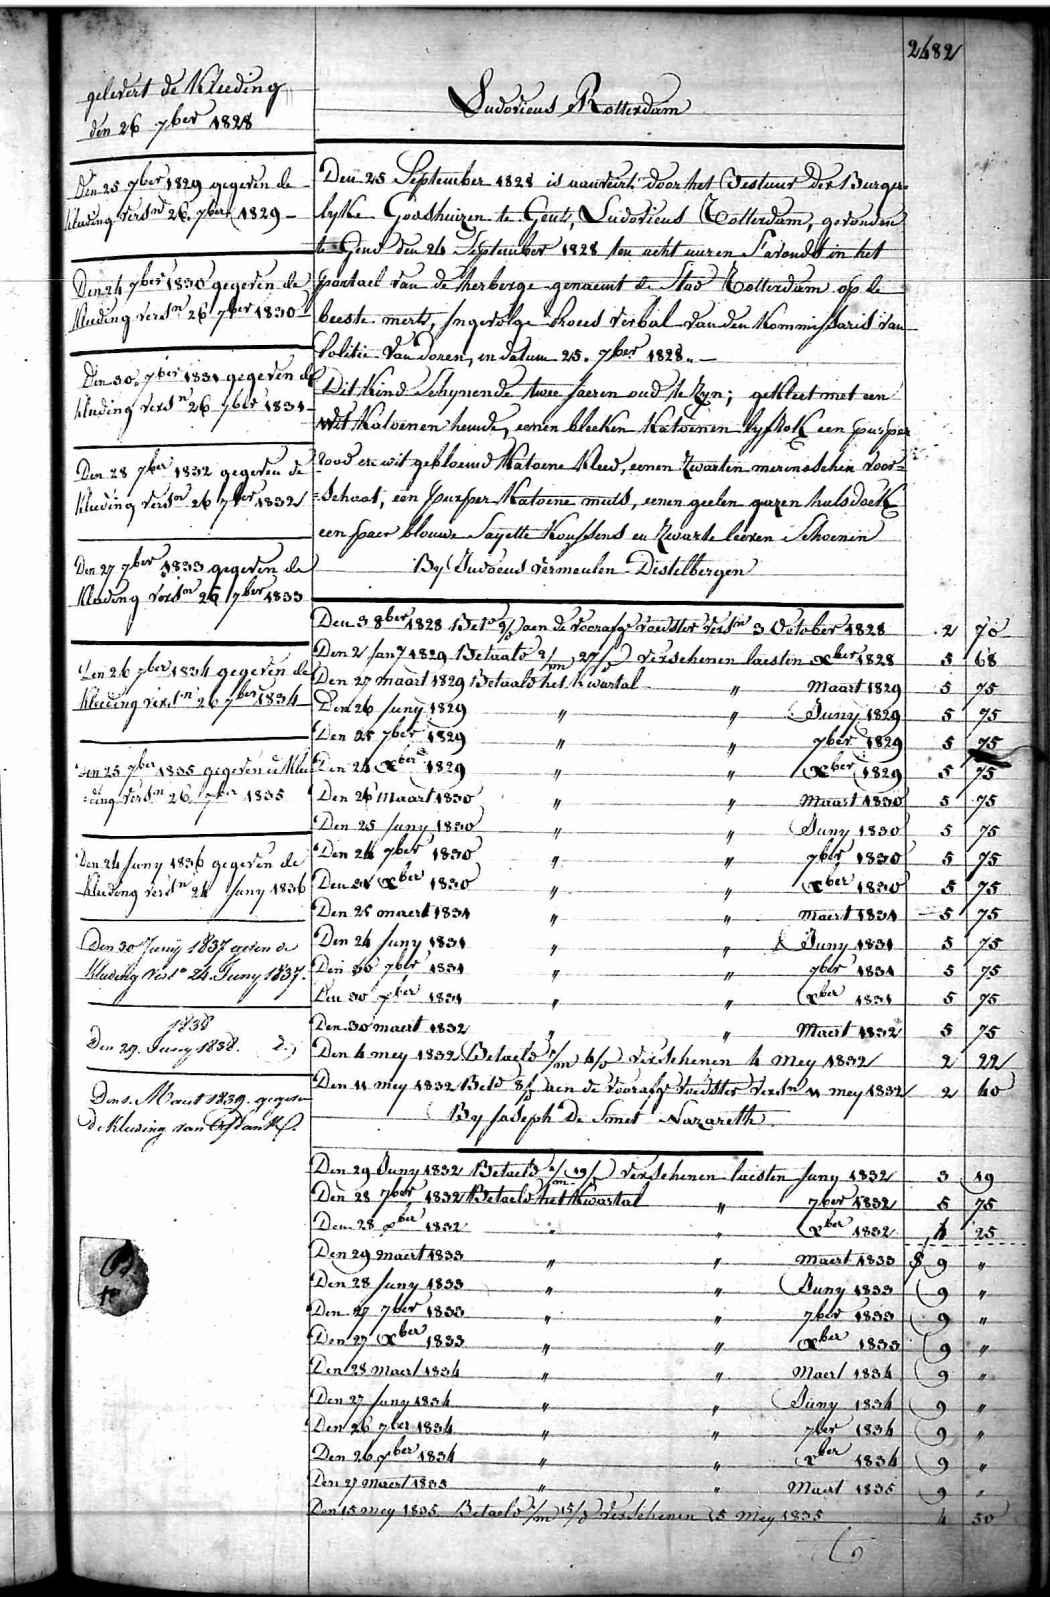 2482
gelevert de Kleeding
den 26 7ber 1828
Den 25 7ber 1829 gegeven de
kleeding versn 26 7ber 1829
Den 24 7ber 1830 gegeven de
kleeding versn 26 7ber 1830
Den 30 7ber 1831 gegeven de
kleeding versn 26 7ber 1831
Den 28 7ber 1832 gegeven de
kleeding versn 26 7ber 1832
Den 27 7ber 1833 gegeven de
kleeding versn 26 7ber 1833
Den 26 7ber 1834 gegeven de
kleeding versn 26 7ber 1834
Den 25 7ber 1835 gegeven de klee
=ding versn 26 7ber 1835
Den 24 Juny 1836 gegeven de
kleeding versn 24 Juny 1836
Den 30 Juny 1837 geven de
kleding versn 24 Juny 1837.
1838
Den 29 Juny 1838.
Den 1. Maert 1839. gegeven
de kleeding van
Ludovicus Rotterdam
Den 25 September 1828 is aanveirt door het Bestuur der Burger=
lyke Godshuizen te Gent, Ludovicus Rotterdam, gevonden
te Gend den 24 September 1828 ten acht uuren s'avonds in het
portael van de herberge genaemt de Stad Rotterdam op de
beeste mert, ingevolge Proces verbal van den Kommissaris van
Politie Van Doren, in datum 25. 7ber 1828.
Dit Kind Schynende twee jaeren oud te Zyn; gekleet met een
wit Katoenen hemde, eenen bleeken Katoenen lyfrok een purper
rood en wit gebloemd Katoene Kleed, eenen Zwarten merinoschen voor=
=schoot, een purper Katoene muts, eenen geelen gazen halsdoek
een paer blouwe Sayette Koussens en Zwarte leeren Schoenen
By Judocus Vermeulen Destelbergen
Den 3 8ber 1828 Bet aen de voorafge voedster versn 3 October 1828 2 70
Den 2 Jany 1829 Betaeld 2/m 27/d verschenen laesten Xber 1828 5 68
Den 27 maart 1829 Betaeld het Kwartal " Maart 1829 5 75
Den 26 Juny 1829 " " Juny 1829 5 75
Den 25 7ber 1829 " " 7ber 1829 5 75
Den 24 Xber 1829 " " Xber 1829 5 75
Den 26 Maart 1830 " " Maart 1830 5 75
Den 25 Juny 1830 " " Juny 1830 5 75
Den 24 7ber 1830 " " 7ber 1830 5 75
Den 31 Xber 1830 " " Xber 1830 5 75
Den 25 maert 1831 " " Maert 1831 5 75
Den 24 Juny 1831 " " Juny 1831 5 75
Den 30 7ber 1831 " " 7ber 1831 5 75
Den 30 Xber 1831 " " Xber 1831 5 75
Den 30 maert 1832 " " Maert 1832 5 75
Den 4 mey 1832 Betaeld 1/m 4/d verschenen 4 Mey 1832 2 22
Den 11 mey 1832 Betd aen de voorafge Voedster versn 11 mey 1832 2 40
By Joseph De Smet Nazareth
Den 29 Juny 1832 Betaeld 1/m 19/d verschenen laesten Juny 1832 3 19
Den 28 7ber 1832 Betaeld het Kwartal " 7ber 1832 5 75
Den 28 Xber 1832 " " Xber 1832 4 25
Den 29 maert 1833 " " Maert 1833 9 "
Den 28 Juny 1833 " " Juny 1833 9 "
Den 27 7ber 1833 " " 7ber 1833 9 "
Den 27 Xber 1833 " " Xber 1833 9 "
Den 28 Maert 1834 " " Maert 1834 9 "
Den 27 Juny 1834 " " Juny 1834 9 "
Den 26 7ber 1834 " " 7ber 1834 9 "
Den 26 Xber 1834 " " Xber 1834 9 "
Den 27 Maert 1835 " " Maert 1835 9 "
Den 15 mey 1835 Betaeld 1/m 15/d verschenen 15 Mey 1835 4 50